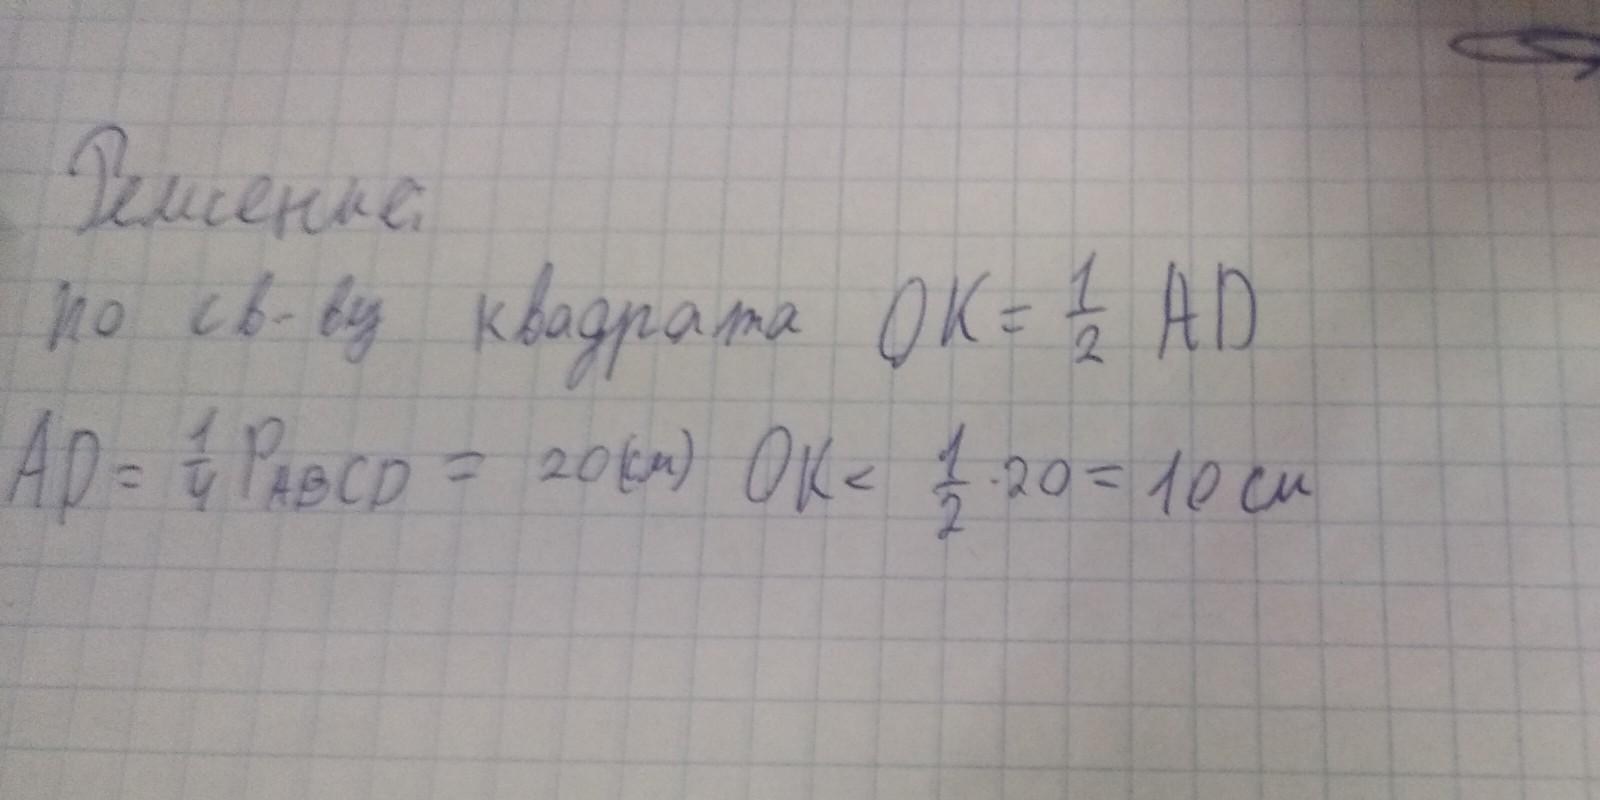 Решение.
по св-ву квадрата OK = 1/2 AD
AD = 1/4 PABCD = 20(см) OK = 1/2 · 20 = 10 см